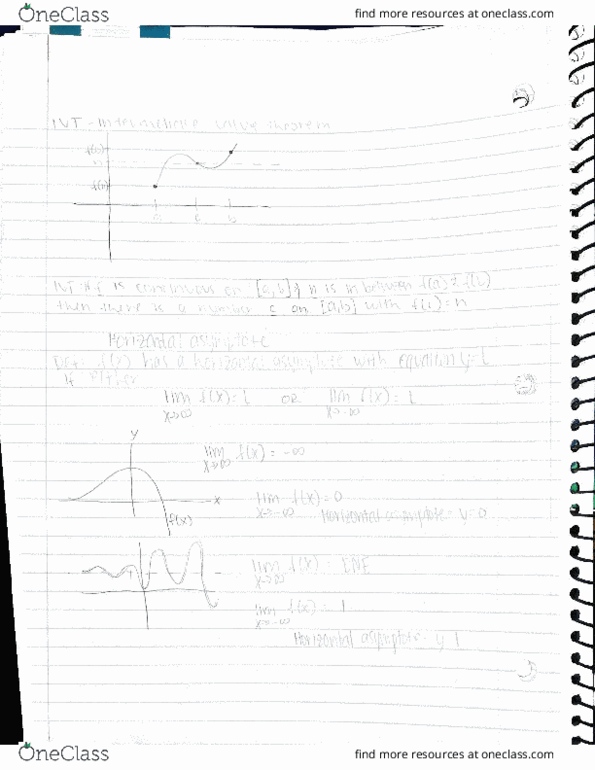 OneClass
find more resources at oneclass.com
IVT - Intermediate value theorem
f(b)
n
f(a)
a c b
IVT: If f is continuous on [a,b] & n is in between f(a) & f(b)
then there is a number c on [a,b] with f(c) = n
Horizontal asymptote
Def: f(x) has a horizontal asymptote with equation y = L
If either
lim f(x) = L OR lim f(x) = L
x→∞ x→-∞
y
lim f(x) = -∞
x→∞
x
lim f(x) = 0
x→-∞
Horizontal asymptote = y = 0
f(x)
lim f(x) = DNE
x→∞
lim f(x) = 1
x→-∞
Horizontal asymptote = y 1
OneClass
find more resources at oneclass.com